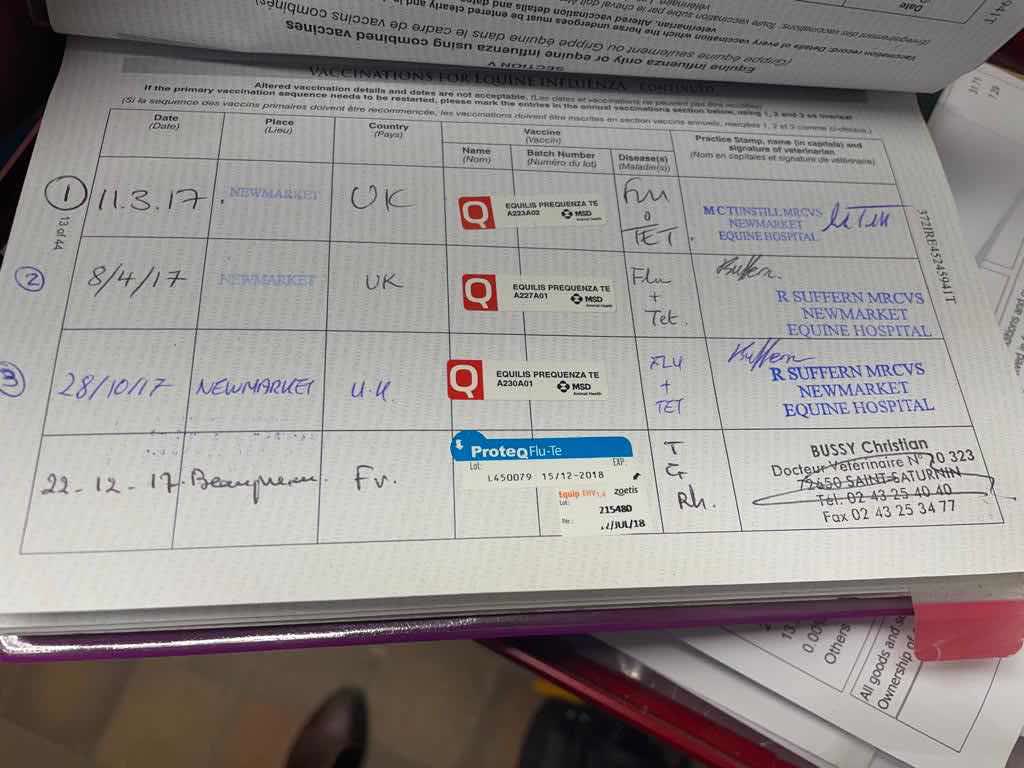 Equine influenza only or equine influenza using combined vaccines
(Grippe équine seulement ou grippe équine dans le cadre de vaccins combinés)
SECTION V
VACCINATIONS FOR EQUINE INFLUENZA CONTINUED
Altered vaccination details and dates are not acceptable. (Les dates et vaccinations ne peuvent pas être rectifiés)
If the primary vaccination sequence needs to be restarted, please mark the entries in the annual vaccinations section below, using 1, 2 and 3 as overleaf
(Si la sequence des vaccins primaires doivent être recommencée, les vaccinations doivent être inscrites en section vaccins annuels, marquées 1, 2 et 3 comme ci-dessus.)
Date
(Date)
Place
(Lieu)
Country
(Pays)
Vaccine
(Vaccin)
Name
(Nom)
Batch Number
(Numéro du lot)
Disease(s)
(Maladie(s))
Practice Stamp, name (in capitals) and
signature of veterinarian
(Nom en capitales et signature de vétérinaire)
1
11.3.17
NEWMARKET
UK
Q
EQUILIS PREQUENZA TE
A223A02
MSD
Animal Health
Flu
TET
M C TUNSTILL MRCVS
NEWMARKET
EQUINE HOSPITAL
2
8/4/17
NEWMARKET
UK
Q
EQUILIS PREQUENZA TE
A227A01
MSD
Animal Health
Flu
+
Tet.
R SUFFERN MRCVS
NEWMARKET
EQUINE HOSPITAL
3
28/10/17
NEWMARKET
U.K.
Q
EQUILIS PREQUENZA TE
A230A01
MSD
Animal Health
FLU
+
TET
R SUFFERN MRCVS
NEWMARKET
EQUINE HOSPITAL
22-12-17
Fr.
ProteqFlu-Te
Lot: EXP.
L450079 15/12-2018
Equip EHV1,4 zoetis
Lot:
215480
/JUL/18
T
Gr
Rh.
BUSSY Christian
Docteur Vétérinaire N° 20 323
72650 SAINT-SATURNIN
Tél. 02 43 25 40 40
Fax 02 43 25 34 77
13 of 44
372IRE45245941T
0.00
Others
All goods and
Ownership of